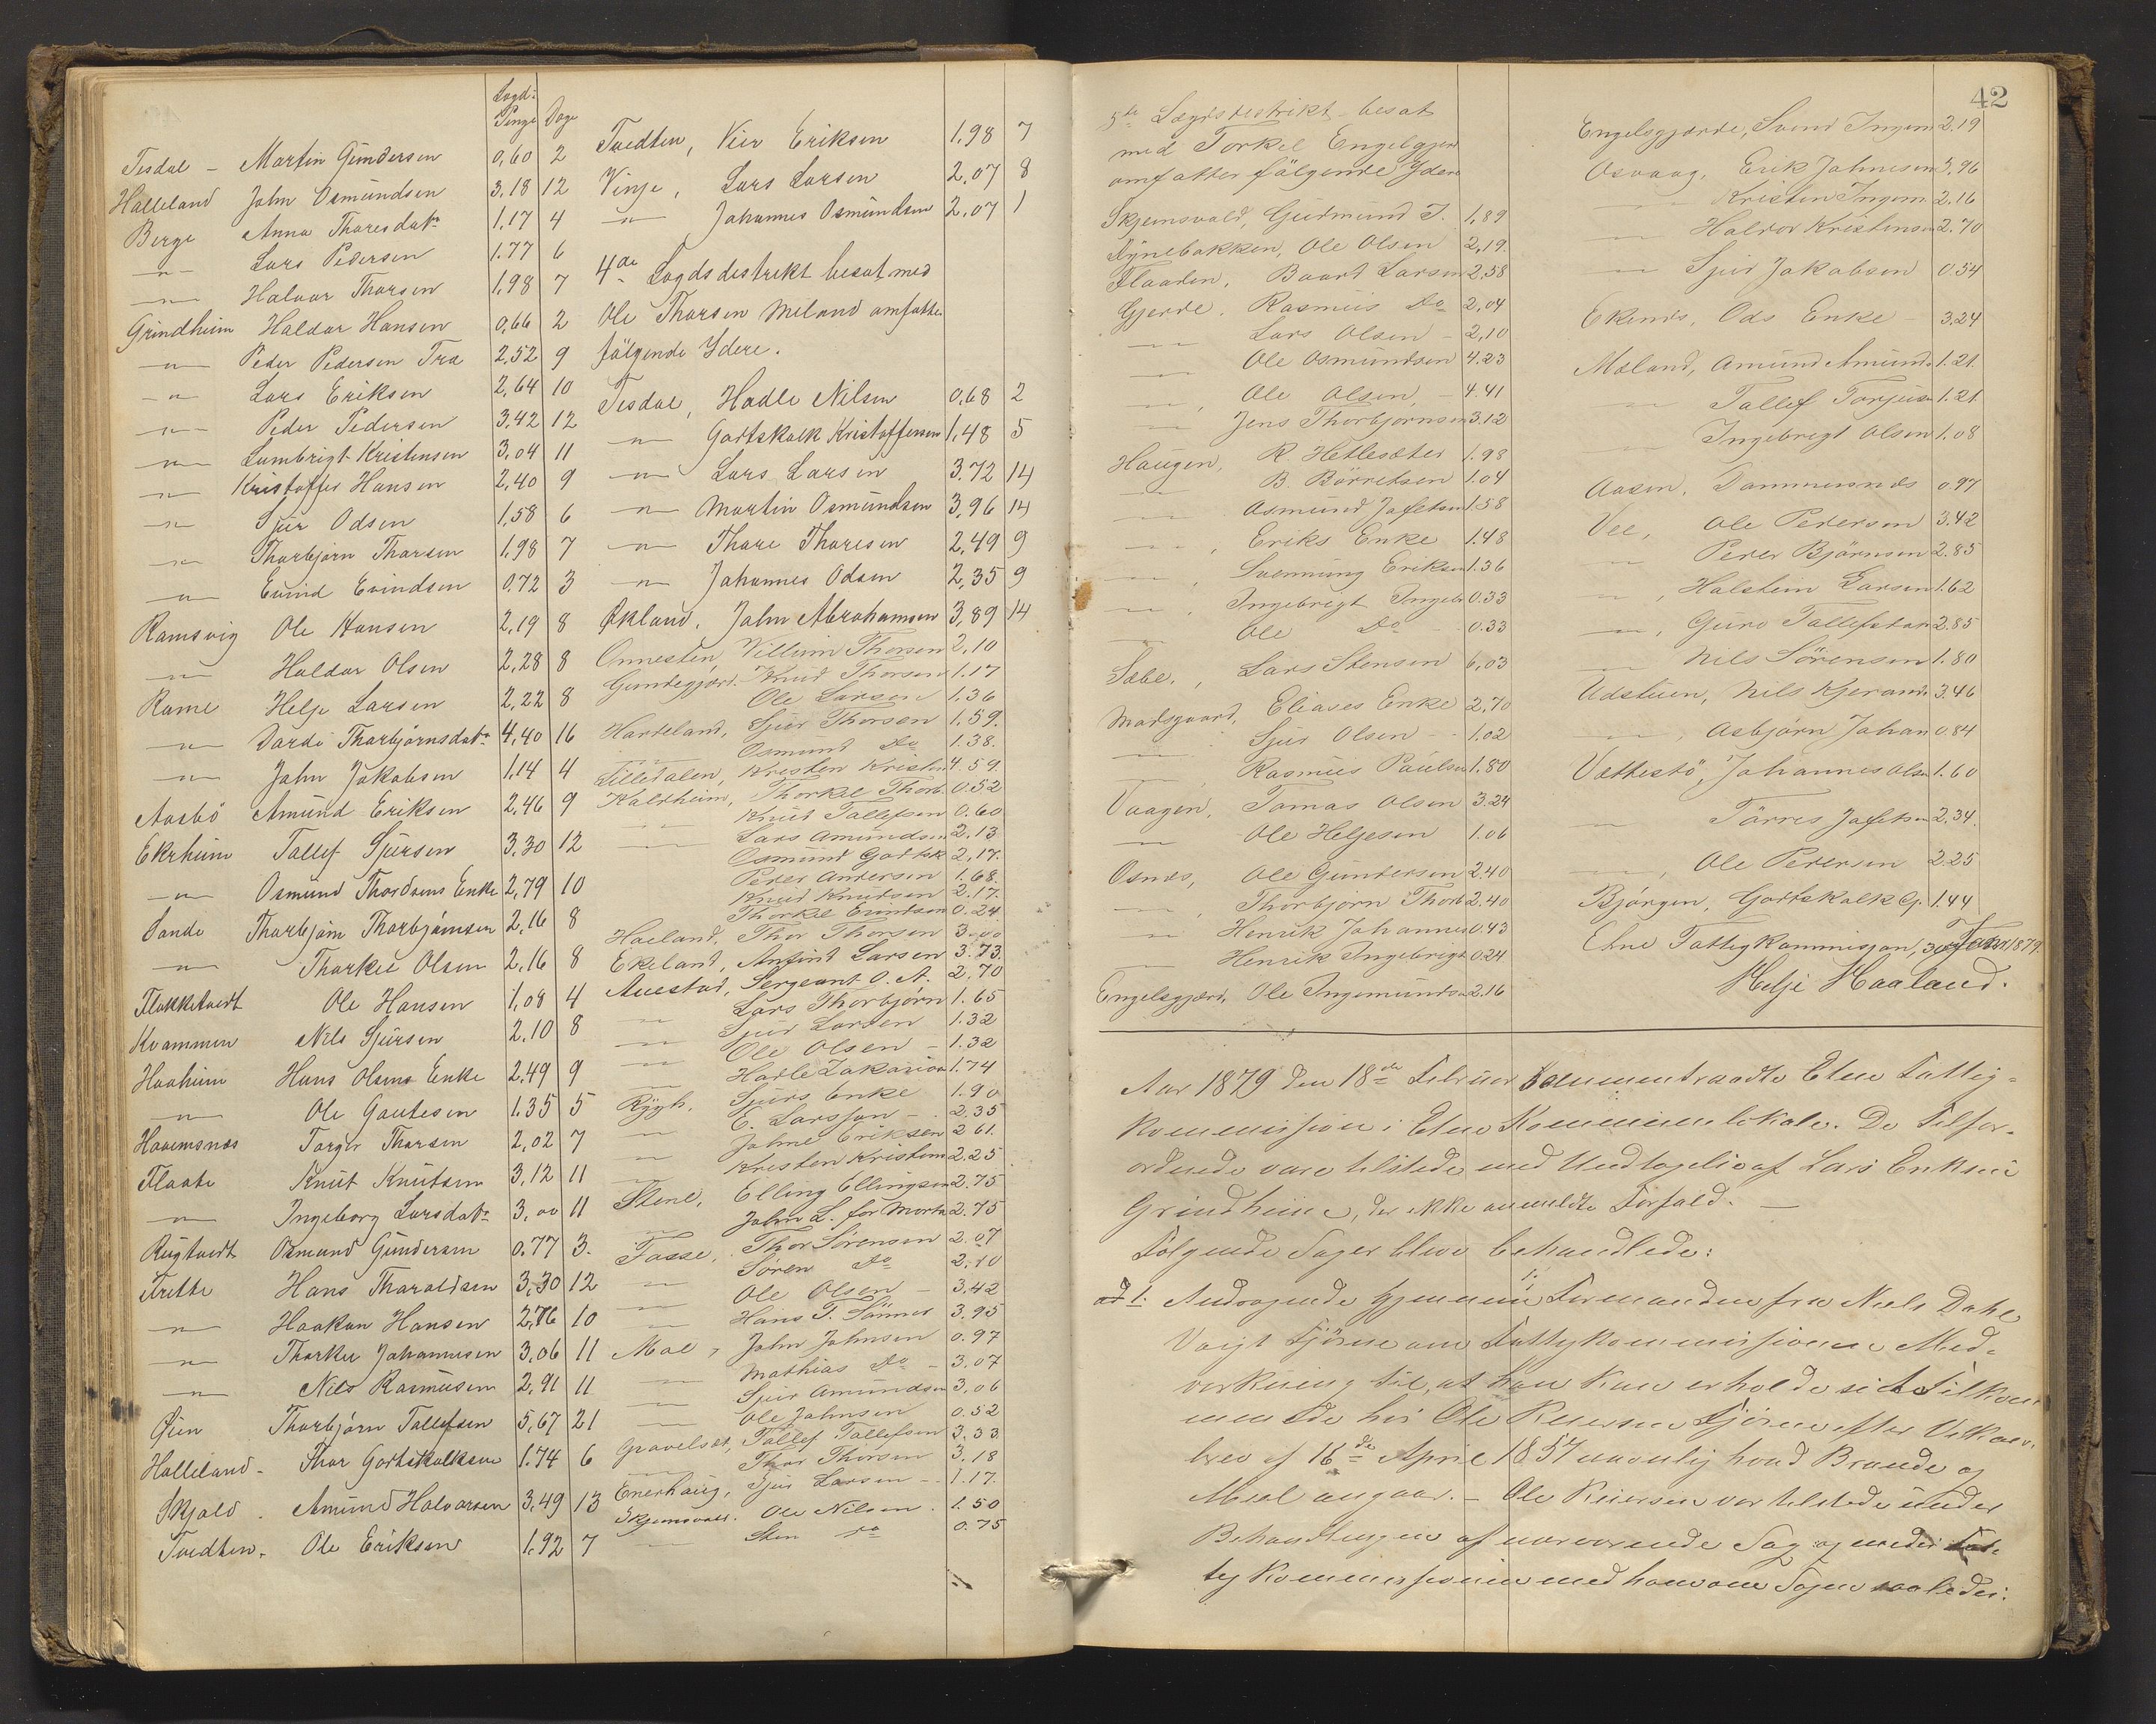 Lægd-
Penge Dage
Tesdal - Martin Gundersen 0,60 2
Halleland John Osmundsen 3,18 12
Berge Anna Thoresdatr 1,17 4
-"- Lars Pedersen 1.77 6
-"- Halvor Thorsen 1,98 7
Grindheim Haldor Hansen 0,66 2
-"- Peder Pedersen Tra 2,52 9
-"- Lars Eriksen 2,64 10
-"- Peder Pedersen 3,42 12
-"- Lambrigt Kristensen 3,04 11
-"- Kristoffer Hansen 2,40 9
-"- Sjur Odsen 1,58 6
-"- Thorbjørn Thorsen 1,98 7
-"- Eivind Eivindsen 0,72 3
Ramsvig Ole Hansen 2,19 8
-"- Haldor Olsen 2,28 8
Rame Helje Larsen 2,22 8
-"- Dardi Thorbjørnsdatr 4,40 16
-"- John Jakobsen 1,14 4
Aasbö Amund Eriksen 2,46 9
Ekrheim Tallef Sjursen 3,30 12
-"- Osmund Thordsens Enke 2,79 10
Sande Thorbjørn Thorbjørnsen 2,16 8
-"- Thorkel Olsen 2,16 8
Flokketvedt Ole Hansen 1,08 4
Kvammen Nils Sjursen 2,10 8
Haaheim Hans Olsens Enke 2,49 9
-"- Ole Gautesen 1.35 5
Haaemsnæs Torger Thorsen 2,02 7
Flaate Knut Knutsen 3,12 11
-"- Ingeborg Larsdatr 3,00 11
Rugtvedt Osmund Gundersen 0.77 3.
Frette Hans Tharaldsen 3,30 12
-"- Haakon Hansen 2,76 10
-"- Thorkel Johannesen 3,06 11
-"- Nils Rasmusen 2,91 11
Øien Thorbjørn Tallefsen 5,67 21
Halleland - Thor Gortskalksen 1.74 6
Skjold . Amund Halvorsen 3,49 13
Tvedten. Ole Eriksen 1,92 7
Tvedten, Vier Eriksen 1.98 7
Vinje, Lars Larsen 2,07 8
-"- Johannes Osmundsen 2,07 1
4de Lægdsdestrikt besat med
Ole Thorsen Meland omfatter
følgende Ydere.
Tesdal, Hadle Nilsen 0,68 2
-"- Gortskalk Kristoffersen 1,48 5
-"- Lars Larsen 3.72 14
-"- Martin Osmundsen 3,96 14
-"- Thore Thoresen 2,49 9
-"- Johannes Odsen 2,35 9
Økland, John Abrahamsen 3,89 14
Onnesten, Villum Thorsen 2,10
Gundegjerd. Knud Thorsen 1.17
Ole Larsen 1.36
Harteland, Sjur Thorsen 1.59.
Osmund Do 1.38.
Lilledalen, Kristen Kristen 4.59.
Kaldheim, Thorkel Thorb. 0.52
Knut Tallefsen 0.60
Lars Amundsen 2.13
Osmund Godtsk 2,17.
Peder Andersen 1.68.
Knud Knudsen 2.17.
Thorkel Evindsen 0.24
Haeland, Thor Thorsen 3,00
Ekeland, Anfind Larsen 3.73.
Auestad, Sergeant O. A. 2.70
Lars Thorbjørn 1.65
-"- Sjur Larsen 1.32
-"- Ole Olsen - 1.32
Hadle Zakarias 1.74
Rygh, Sjurs Enke 1.90
-"- E. Larsson - 2.35
-"- Johne Eriksen 2 61.
Kristen Kristens 2.25
Stene, Elling Ellingsen 2.75
John L. for Morten 2.75
Tasse, Thor Sörensen 2.07
-"- Sören Do 2.10
-"- Ole Olsen - 3.42
-"- Hans T. Sönner 3.95
Mæl, John Johnsen 0.97
-"- Mathias Do - 3.07
-"- Sjur Amundsen 3,06
-"- Ole Johnsen 0.52
Gravelsæt, Tallef Tallefsen 3.33
Thor Thorsen 3.18
Enerhaug, Sjur Larsen - 1.17.
Skjemsvold. Ole Nilsen . 1.50
Sten Do 0.75
42
5te Lægdsdestrikt besat
med Torkel Engelsgjerd
omfatter følgende Ydere
Skjemsvold, Gudmund T. 1,89
Dynebakken, Ole Olsen 2,19
Flaaden, Baard Larsen 2.58
Gjerde, Rasmus Do 2,04
-"- Lars Olsen - 2,10
-"- Ole Osmundsen 4.23
-"- Ole Olsen, - 4.41
-"- Jens Thorbjornsen 3.12
Haugen, R. Hetlesæter 1.98
-"- B. Börretsen 1.04
-"- Osmund Jafetsen 1.58
-"- , Eriks Enke 1.48
-"- , Svenning Eriksen 1.36
-"- , Ingebrigt Ingeb 0.33
-"- Ole Do - 0.33
Sæbe, Lars Stensen 6,03
Madsgaard, Eliases Enke 2,70
-"- Sjur Olsen - 1.02
-"- Rasmus Paulsen 1.80
Vaagen, Tomas Olsen 3.24
-"- Ole Helgesen 1.06
Osnæs, Ole Gundersen 2.40
-"- Thorbjørn Thorb 2.40
-"- Henrik Johannes 0.43
-"- Henrik Ingebrigt 0.24
Engelsgjerd, Ole Ingemundsen 2.16
Engelsgjærde, Svend Ingem 2.19
Osvaag, Erik Johnsen 3,96
-"- Kristen Ingem. 2.16
-"- Haldor Kristensen 2.70
-"- Sjur Jakobsen 0.54
Ekenæs, Ods Enke - 3.24
Mæland, Amund Amund. 1.21.
-"- Tallef Torjus 1.21
-"- Ingebregt Olsen 1.08
Aasen, Dommersnæs 0.97
Vee, Ole Pedersen 3.42
-"- Peder Björnsen 2.85
-"- , Halstein Larsen 1.62
-"- , Guro Tallefsdatr 2.85
-"- Nils Sörensen 1.80
Udstuen, Nils Kjerand. 3.46
-"- , Asbjørn Johan 0.84
Vattestö, Johannes Olsen 1.60
-"- Törres Jafetsen 2.34.
-"- , Ole Pedersen 2.25
Bjørgen, Gortskalk G. 1.44
Etne Fattigkommisjon, 30 Jan 1879.
Helje Haaland.
Aar 1879 den 18de Februar sammentraadte Etne Fattig-
kommission i Etne Kommunelokale. De Tilfor-
ordnede vare tilstede med Undtagelse af Lars Eriksen
Grindheim, der ikke anmeldte Forfald. -
Følgende Sager bleve behandlede:
ad 1. Andragende gjennem Formanden fra Niels Dahl
Voigt Fjösne om Fattigkommissionens Med-
virkning til, at han kan erholde sit Tilkom-
mende hos Ole Reiersen Fjösne efter Vilkaars-
brev af 16de April 1857 navnlig hvad Brænde og
Meel angaar. - Ole Reiersen var tilstede under
Behandlingen af nærværende Sag og
tigkommissionen med ham om Sagen saaledes: